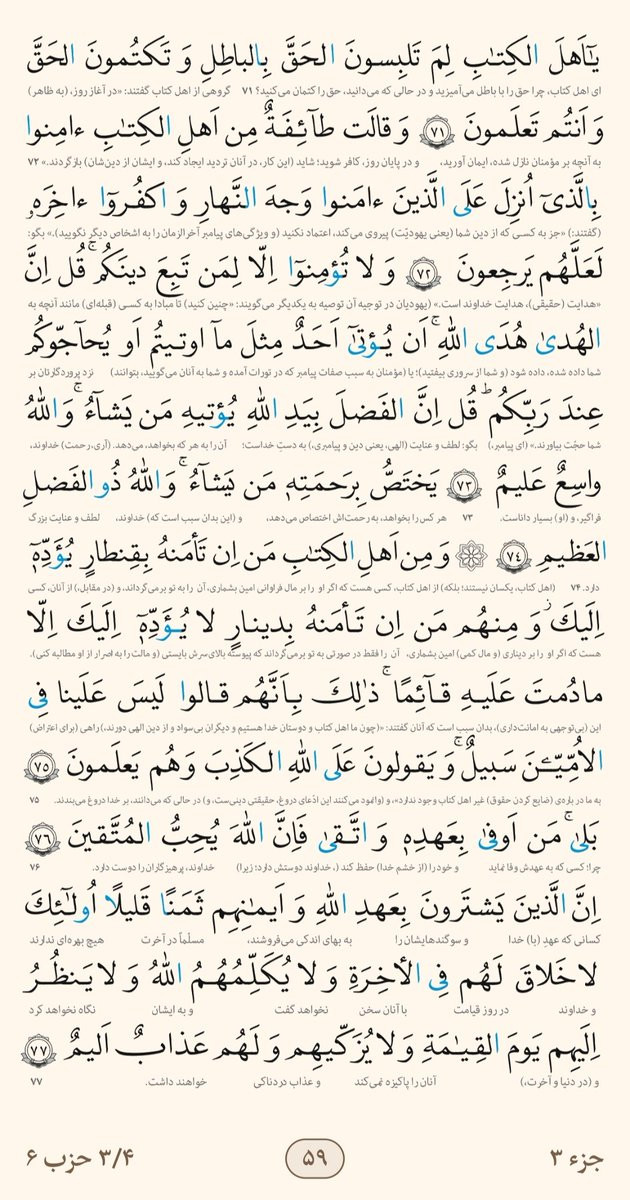 يٰٓاَهلَ الكِتٰبِ لِمَ تَلبِسونَ الحَقَّ بِالباطِلِ وَ تَكتُمونَ الحَقَّ
ای اهل کتاب، چرا حق را با باطل می‌آمیزید و در حالی که می‌دانید، حق را کتمان می‌کنید؟ ۷۱ گروهی از اهل کتاب گفتند: «در آغاز روز، (به ظاهر)
وَ اَنتُم تَعلَمونَ ﴿۷۱﴾ وَ قالَت طآئِفَةٌ مِن اَهلِ الكِتٰبِ ءامِنوا
به آنچه بر مؤمنان نازل شده، ایمان آورید، و در پایان روز، کافر شوید؛ شاید (این کار، در آنان تردید ایجاد کند، و ایشان از دین‌شان) بازگردند.» ۷۲
بِالَّذىٓ اُنزِلَ عَلَى الَّذينَ ءامَنوا وَجهَ النَّهارِ وَ اكفُروٓا ءاخِرَهو
(گفتند:) «جز به کسی که از دین شما (یعنی یهودیّت) پیروی می‌کند، اعتماد نکنید (و ویژگی‌های پیامبر آخرالزمان را به اشخاص دیگر نگویید).» بگو:
لَعَلَّهُم يَرجِعونَ ﴿۷۲﴾ وَ لا تُؤمِنوٓا اِلّا لِمَن تَبِعَ دينَكُم ۚ قُل اِنَّ
«هدایت (حقیقی)، هدایت خداوند است.» (یهودیان در توجیه آن توصیه به یکدیگر می‌گویند: «چنین کنید) تا مبادا به کسی (قبله‌ای) مانند آنچه به
الهُدىٰ هُدَى اللّٰهِ ۚ اَن يُؤتىٰٓ اَحَدٌ مِثلَ مآ اوتيتُم اَو يُحآجّوكُم
شما داده شده، داده شود (و شما از سروری بیفتید)؛ یا (مؤمنان به سبب صفات پیامبر که در تورات آمده و شما به آنان می‌گویید، بتوانند) نزد پروردگارتان بر
عِندَ رَبِّكُم ۗ قُل اِنَّ الفَضلَ بِيَدِ اللّٰهِ يُؤتيهِ مَن يَشآءُ ۚ وَ اللّٰهُ
شما حجّت بیاورند.» (ای پیامبر،) بگو: لطف و عنایت (الهی، یعنی دین و پیامبری)، به دست خداست؛ آن را به هر که بخواهد، می‌دهد. (آری، رحمت) خداوند،
واسِعٌ عَليمٌ ﴿۷۳﴾ يَختَصُّ بِرَحمَتِهٖ مَن يَشآءُ ۚ وَ اللّٰهُ ذُو الفَضلِ
فراگیر، و (او) بسیار داناست. ۷۳ هر کس را بخواهد، به رحمت‌اش اختصاص می‌دهد، و (این بدان سبب است که) خداوند، لطف و عنایت بزرگ
العَظيمِ ﴿۷۴﴾ ۞ وَ مِن اَهلِ الكِتٰبِ مَن اِن تَأمَنهُ بِقِنطارٍ يُؤَدِّهٖٓ
دارد. ۷۴ (اهل کتاب، یکسان نیستند؛ بلکه) از اهل کتاب، کسی هست که اگر او را بر مال فراوانی امین بشماری، آن را به تو برمی‌گرداند، و (در مقابل،) از آنان، کسی
اِلَيكَ وَ مِنهُم مَن اِن تَأمَنهُ بِدينارٍ لا يُؤَدِّهٖٓ اِلَيكَ اِلّا
هست که اگر او را بر دیناری (و مال کمی) امین بشماری، آن را فقط در صورتی به تو برمی‌گرداند که پیوسته بالای سرش بایستی (و مالت را به اصرار از او مطالبه کنی).
مادُمتَ عَلَيهِ قآئِمًا ۚ ذٰلِكَ بِاَنَّهُم قالوا لَيسَ عَلَينا فِى
این (بی‌توجهی به امانت‌داری)، بدان سبب است که آنان گفتند: «(چون ما اهل کتاب و دوستان خدا هستیم و دیگران بی‌سواد و از دین الهی دورند،) راهی (برای اعتراض)
الاُمِّيّۦنَ سَبيلٌ ۚ وَ يَقولونَ عَلَى اللّٰهِ الكَذِبَ وَ هُم يَعلَمونَ ﴿۷۵﴾
به ما در باره‌ی (ضایع کردن حقوق) غیر اهل کتاب وجود ندارد»، و (وانمود می‌کنند این ادّعای دروغ، حقیقتی دینی‌ست، و) در حالی که می‌دانند، بر خدا دروغ می‌بندند. ۷۵
بَلىٰ ۚ مَن اَوفىٰ بِعَهدِهٖ وَ اتَّقىٰ فَاِنَّ اللّٰهَ يُحِبُّ المُتَّقينَ ﴿۷۶﴾
چرا؛ کسی که به عهدش وفا نماید و خود را (از خشم خدا) حفظ کند (، خداوند دوستش دارد؛ زیرا) خداوند، پرهیزگاران را دوست دارد. ۷۶
اِنَّ الَّذينَ يَشتَرونَ بِعَهدِ اللّٰهِ وَ اَيمٰنِهِم ثَمَنًا قَليلًا اُولٰٓئِكَ
کسانی که عهدِ (با) خدا و سوگندهایشان را به بهای اندکی می‌فروشند، مسلّماً در آخرت هیچ بهره‌ای ندارند
لا خَلاقَ لَهُم فِى الأخِرَةِ وَ لا يُكَلِّمُهُمُ اللّٰهُ وَ لا يَنظُرُ
و خداوند در روز قیامت با آنان سخن نخواهد گفت و به ایشان نگاه نخواهد کرد
اِلَيهِم يَومَ القِيٰمَةِ وَ لا يُزَكّيهِم وَ لَهُم عَذابٌ اَليمٌ ﴿۷۷﴾
و (در دنیا و آخرت،) آنان را پاکیزه نمی‌کند و عذاب دردناکی خواهند داشت. ۷۷
جزء ۳ ۵۹ ۳/۴ حزب ۶